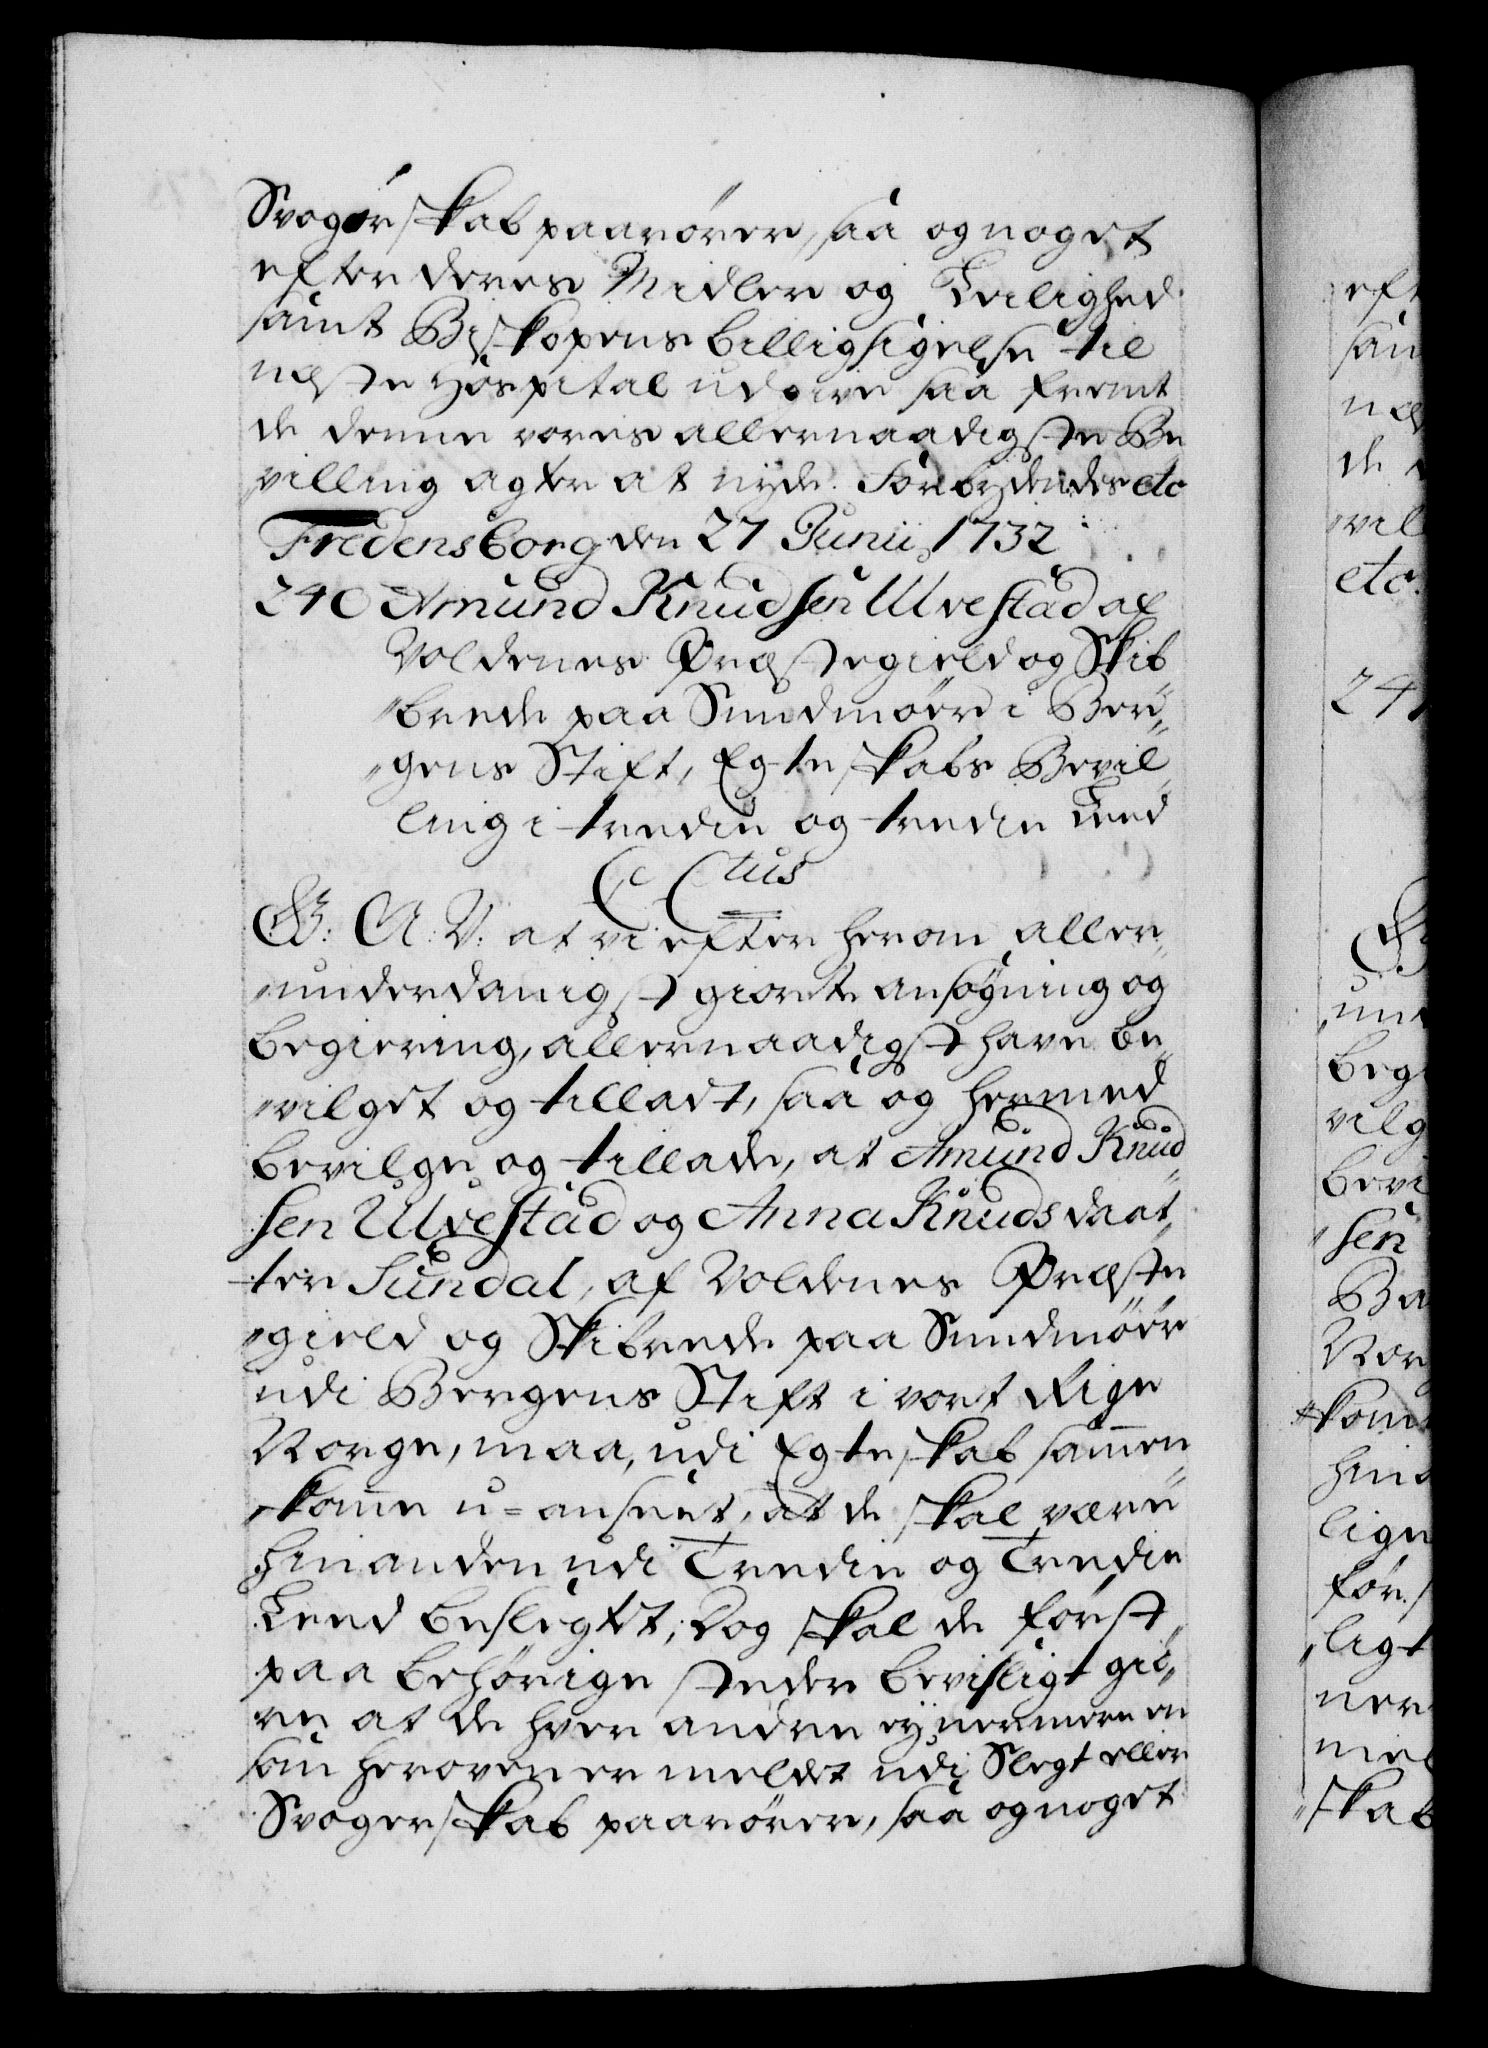 Svogerskab paarører, saa og noget
efter deres Midler og Leilighed
samt Biskopens billigsigelse til
næste Hospital udgive saa fremt
de denne vores allernaadigste Be
villing agter at nyde. Forbydendes etc
Fredensborg den 27 Junii 1732
240 Amund Knudsen Ulvestad af
Voldenes Præstegield og Skib
"brede paa Sundmøer i Ber„
"gens Stift, Egteskabs Bevil„
ling i tredie og tredie Leed
C C tus
G: A: V: at vi efter herom aller„
"underdanigst giorte ansøgning og
begiering, allernaadigst have be„
"vilget og tilladt, saa og hermed
bevilge og tillade, at Amund Knud
sen Ulvestad og Anna Knuds daat„
ter Sundal, af Voldenes Præste
"gield og Skibrede paa Sundmøer
udi Bergens Stift i vort Rige
Norge, maa, udi Egteskab sammen„
"komme u=anseet, at de skal være
hinanden udi Tredie og Tredie
Leed beslegtet; Dog skal de først„
paa behørige steder bevisligt giø„
re at de hver andre ey nermere en
som heroven er meldet udi Slegt eller
Svogerskab paarører, saa og noget
eft
sam
næ
de
"vil
etc.
241
G
"un
beg
vilg
bevi
"sen
Ba
Nor
"kom
hin
lige
før
"ligt
ner
mel
"skab